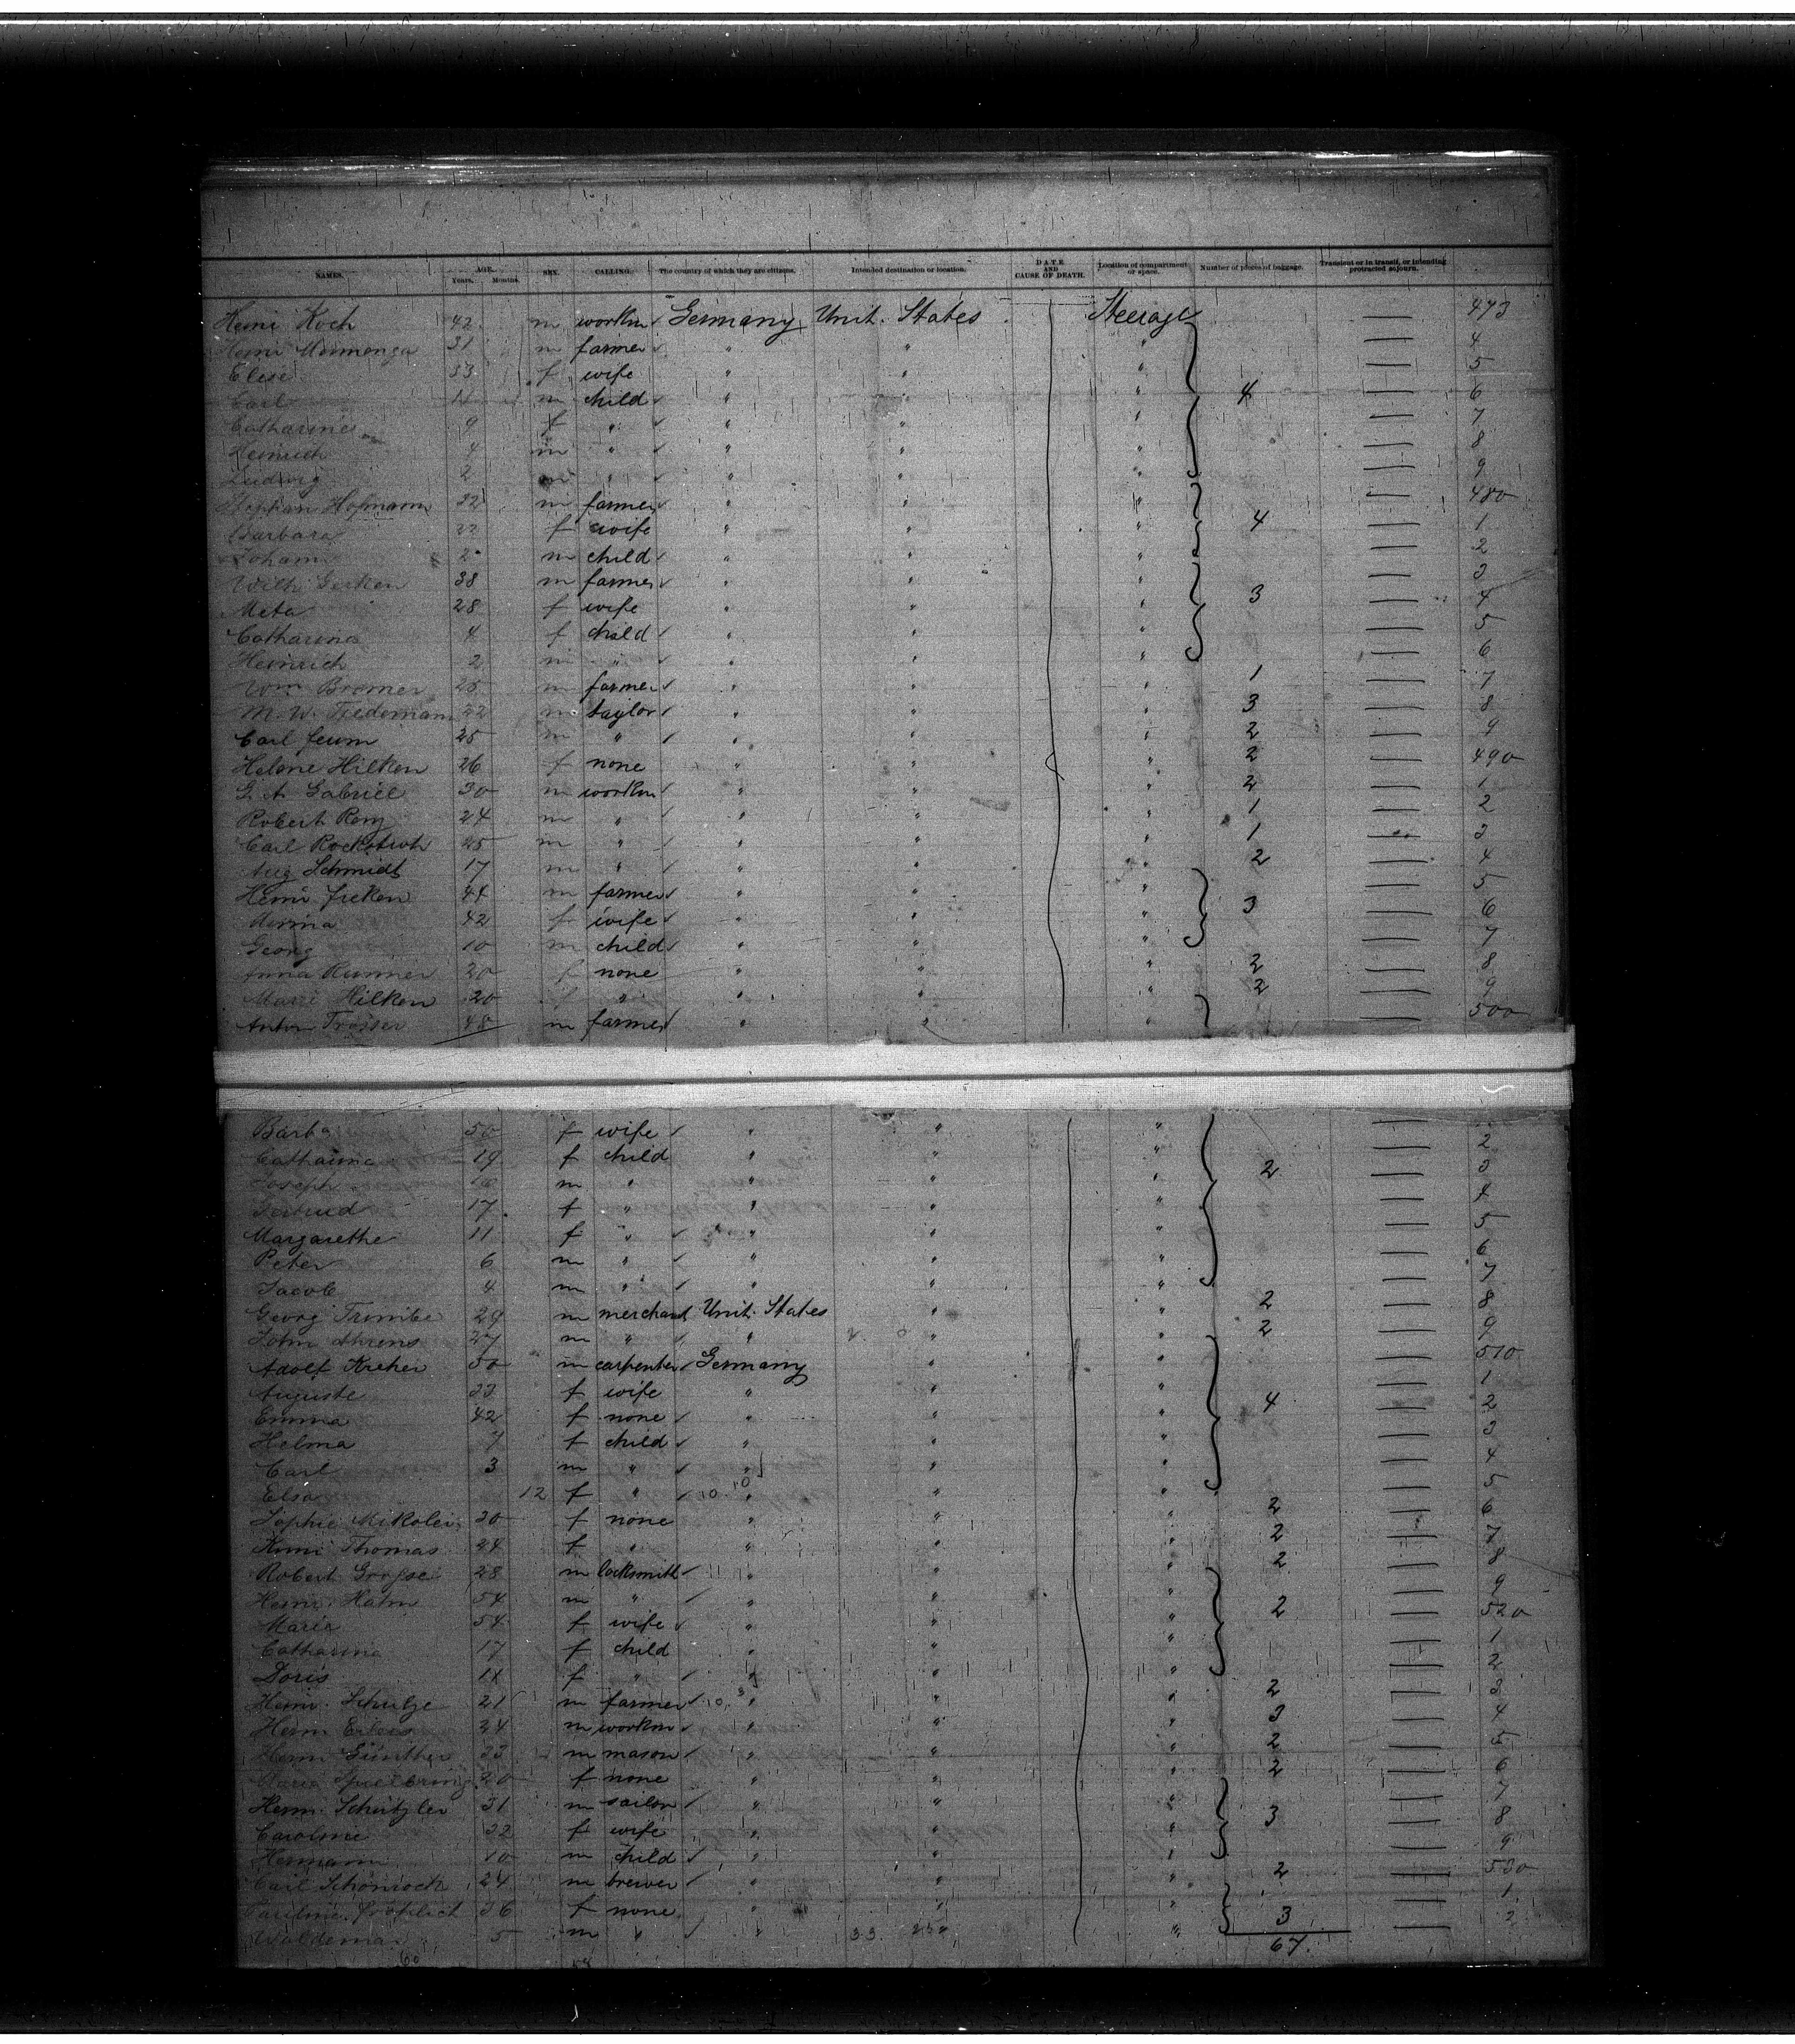 NAMES. AGE. Years. Months. SEX. CALLING. The country of which they are citizens. Intended destination or location. DATE AND CAUSE OF DEATH. Location of compartment or space. Number of pieces of baggage. Transient or in transit, or intending protracted sojourn.
Heinr Koch 42 m workm Germany Unit. States Steerage — 473
Heinr 31 m farmer " " " — 4
Elise 33 f wife " " " — 5
Carl 11 m child " " " 4 — 6
Catharine 9 f " " " " — 7
Heinrich 4 m " " " " — 8
Ludwig 2 m " " " " — 9
Stephan Hofmann 32 m farmer " " " — 480
Barbara 22 f wife " " " 4 — 1
Johann 2 m child " " " — 2
Wilh Gerken 38 m farmer " " " — 3
Meta 28 f wife " " " 3 — 4
Catharina 4 f child " " " — 5
Heinrich 2 m " " " " — 6
Wm Bremer 25 m farmer " " " 1 — 7
M. W. Tiedemann 22 m taylor " " " 3 — 8
Carl 25 m " " " " 2 — 9
Helene Hilken 26 f none " " " 2 — 490
G. A. Gabriel 30 m workm " " " 2 — 1
Robert 24 m " " " " 1 — 2
Carl Rockstroh 25 m " " " " 1 — 3
Aug Schmidt 17 m " " " " 2 — 4
Heinr Ficken 44 m farmer " " " — 5
42 f wife " " " 3 — 6
Georg 10 m child " " " — 7
Anna 20 f none " " " 2 — 8
Marie Hilken 20 f " " " " 2 — 9
Anton 48 m farmer " " — 500
Barba 50 f wife " " " —
Catharina 19 f child " " " — 2
Joseph 16 m " " " " 2 — 3
Gertrud 17 f " " " " — 4
Margarethe 11 f " " " " — 5
Peter 6 m " " " " — 6
Jacob 4 m " " " " — 7
Georg 29 m merchant Unit. States " " 2 — 8
John Ahrens 27 m " " " " 2 — 9
Adolf Kreher 50 m carpenter Germany " " — 510
Auguste 33 f wife " " " — 1
Emma 42 f none " " " 4 — 2
Helma 7 f child " " " — 3
Carl 3 m " " " " — 4
Elsa 12 f " 10 10 " " " — 5
Sophie Mikolei 20 f none " " " 2 — 6
Thomas 24 f " " " " 2 — 7
Robert Grosse 28 m locksmith " " " 2 — 8
Heinr. Hahn 54 m " " " " — 9
Maria 54 f wife " " " 2 — 520
Catharina 17 f child " " " — 1
Doris 11 f " " " " — 2
Heinr. Schulze 21 m farmer " " " 2 — 3
Herm 24 m workm " " " 3 — 4
Herm Günther 23 m mason " " " 2 — 5
Maria 20 f none " " " 2 — 6
Herm. Schützler 31 m sailor " " " — 7
Caroline 32 f wife " " " 3 — 8
Hermann 10 m child " " " — 9
Carl 24 m brewer " " " 2 — 530
Pauline 36 f none " " " — 1
Waldemar 5 m " " " 3 — 2
67.